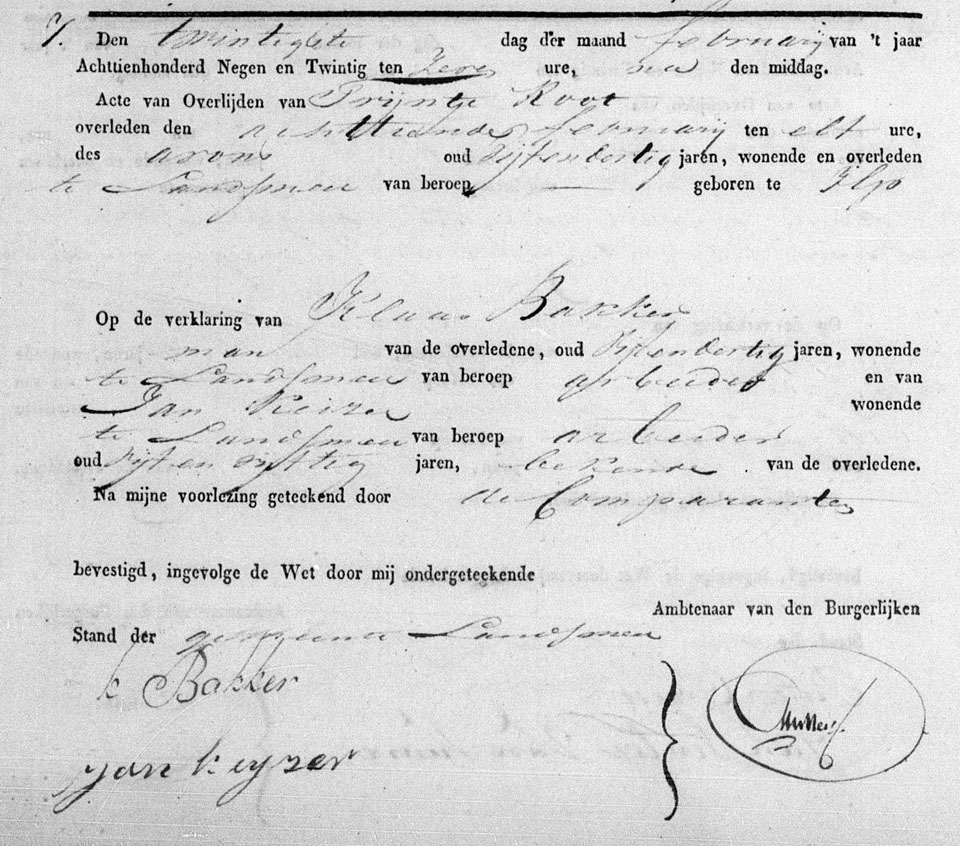 7. Den twintigste dag der maand februarij van 't jaar
Achttienhonderd Negen en Twintig ten Zeve ure, na den middag.
Acte van Overlijden van Trijntje Root
overleden den achttiende februarij ten elf ure,
des avons oud Vijfendertig jaren, wonende en overleden
te Landsmeer van beroep — geboren te Ilp
Op de verklaring van Klaas Bakker
man van de overledene, oud Vijfendertig jaren, wonende
te Landsmeer van beroep arbeider en van
Jan Keizer wonende
te Landsmeer van beroep arbeider
oud Vijf en vijftig jaren, bekende van de overledene.
Na mijne voorlezing geteekend door de Comparanten
bevestigd, ingevolge de Wet door mij ondergeteekende
Ambtenaar van den Burgerlijken
Stand der gemeente Landsmeer
k Bakker
jan keyzer